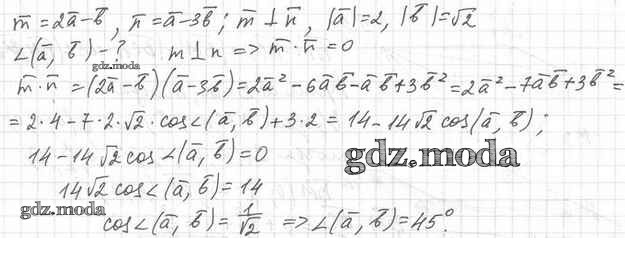 m̄ = 2ā – b̄, n̄ = ā – 3b̄; m̄ ⊥ n̄, |ā| = 2, |b̄| = √2
∠(ā, b̄) – ? m ⊥ n => m̄ · n̄ = 0
gdz.moda
m̄ · n̄ = (2ā – b̄)(ā – 3b̄) = 2ā² – 6āb̄ – āb̄ + 3b̄² = 2ā² – 7āb̄ + 3b̄² =
= 2 · 4 – 7 · 2 · √2 · cos∠(ā, b̄) + 3 · 2 = 14 – 14√2 cos(ā, b̄);
14 – 14√2 cos∠(ā, b̄) = 0
gdz.moda
14√2 cos∠(ā, b̄) = 14
gdz.moda
cos∠(ā, b̄) = 1/√2 => ∠(ā, b̄) = 45°.